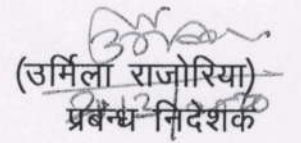 (उर्मिला राजोरिया)
प्रबन्ध निदेशक